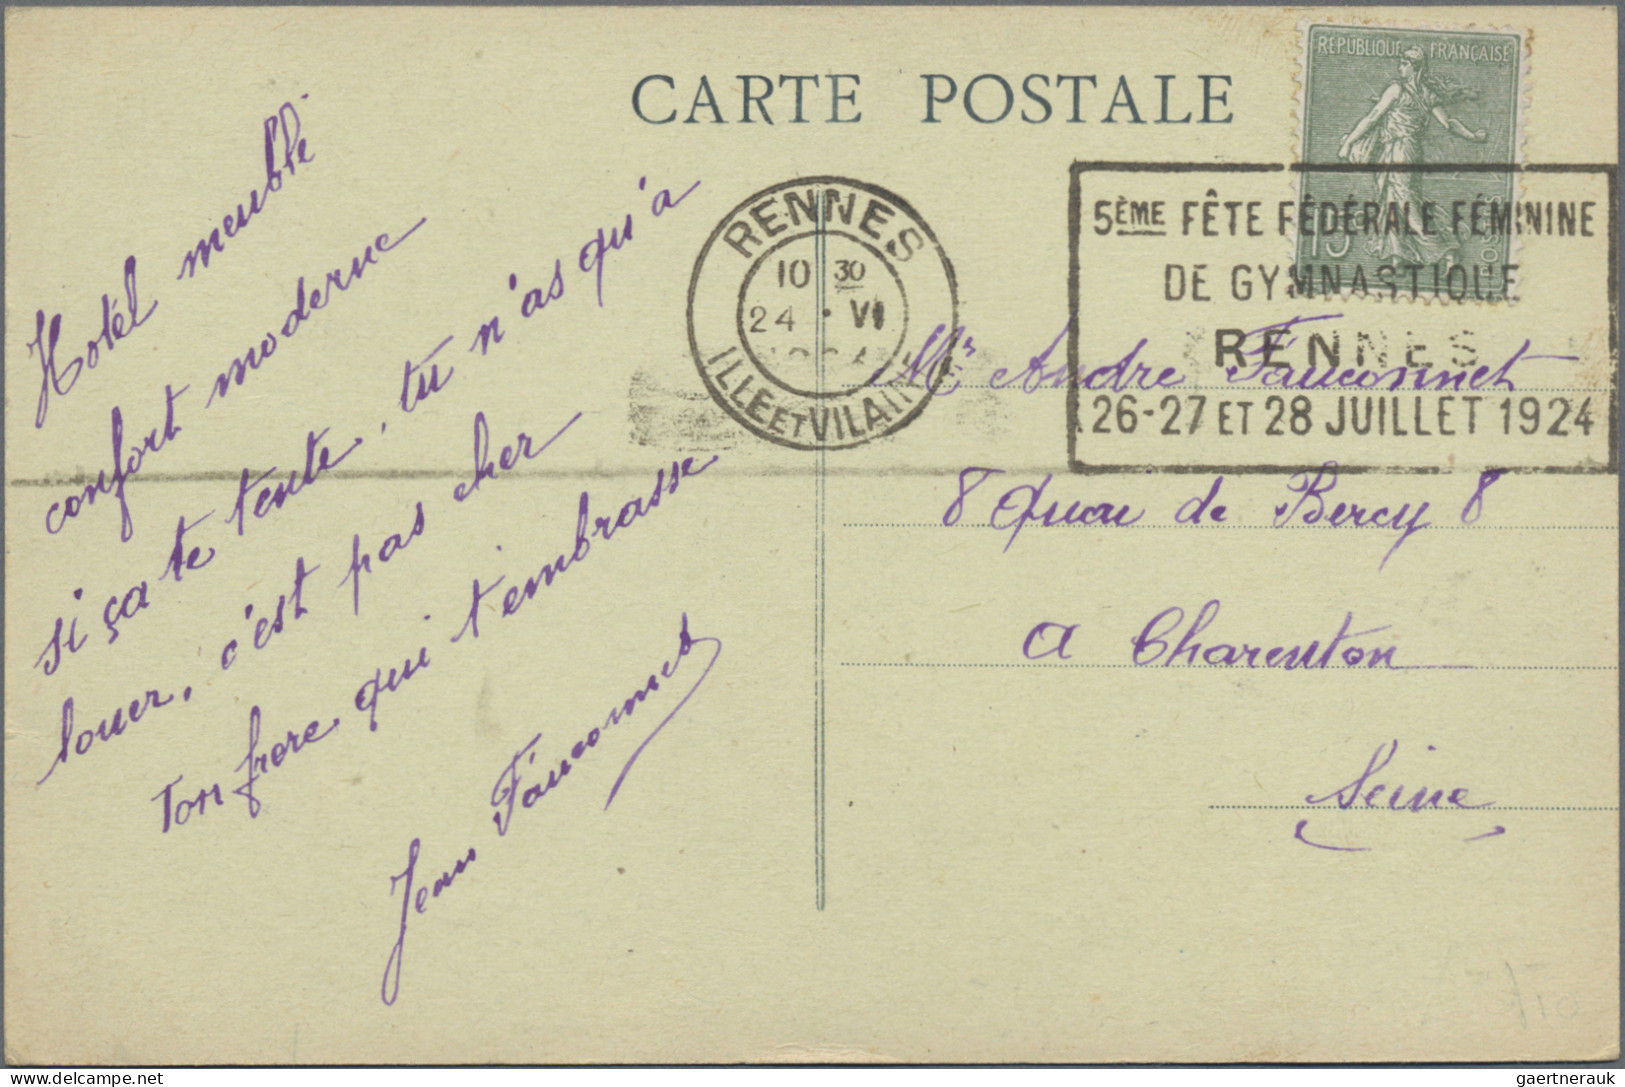 CARTE POSTALE
REPUBLIQUE FRANÇAISE
15
RENNES
10 30
24 • VI
ILLE ET VILAINE
5ÈME FÊTE FÉDÉRALE FÉMININE
DE GYMNASTIQUE
RENNES
26-27 ET 28 JUILLET 1924
Hotél meublé
confort moderne
si ça te tente, tu n'as qu'à
louer, c'est pas cher
Ton frere qui t'embrasse
Jean Fauconnet
Mr Andre Fauconnet
8 Quai de Bercy 8
a Charenton
Seine
gaertnerauk